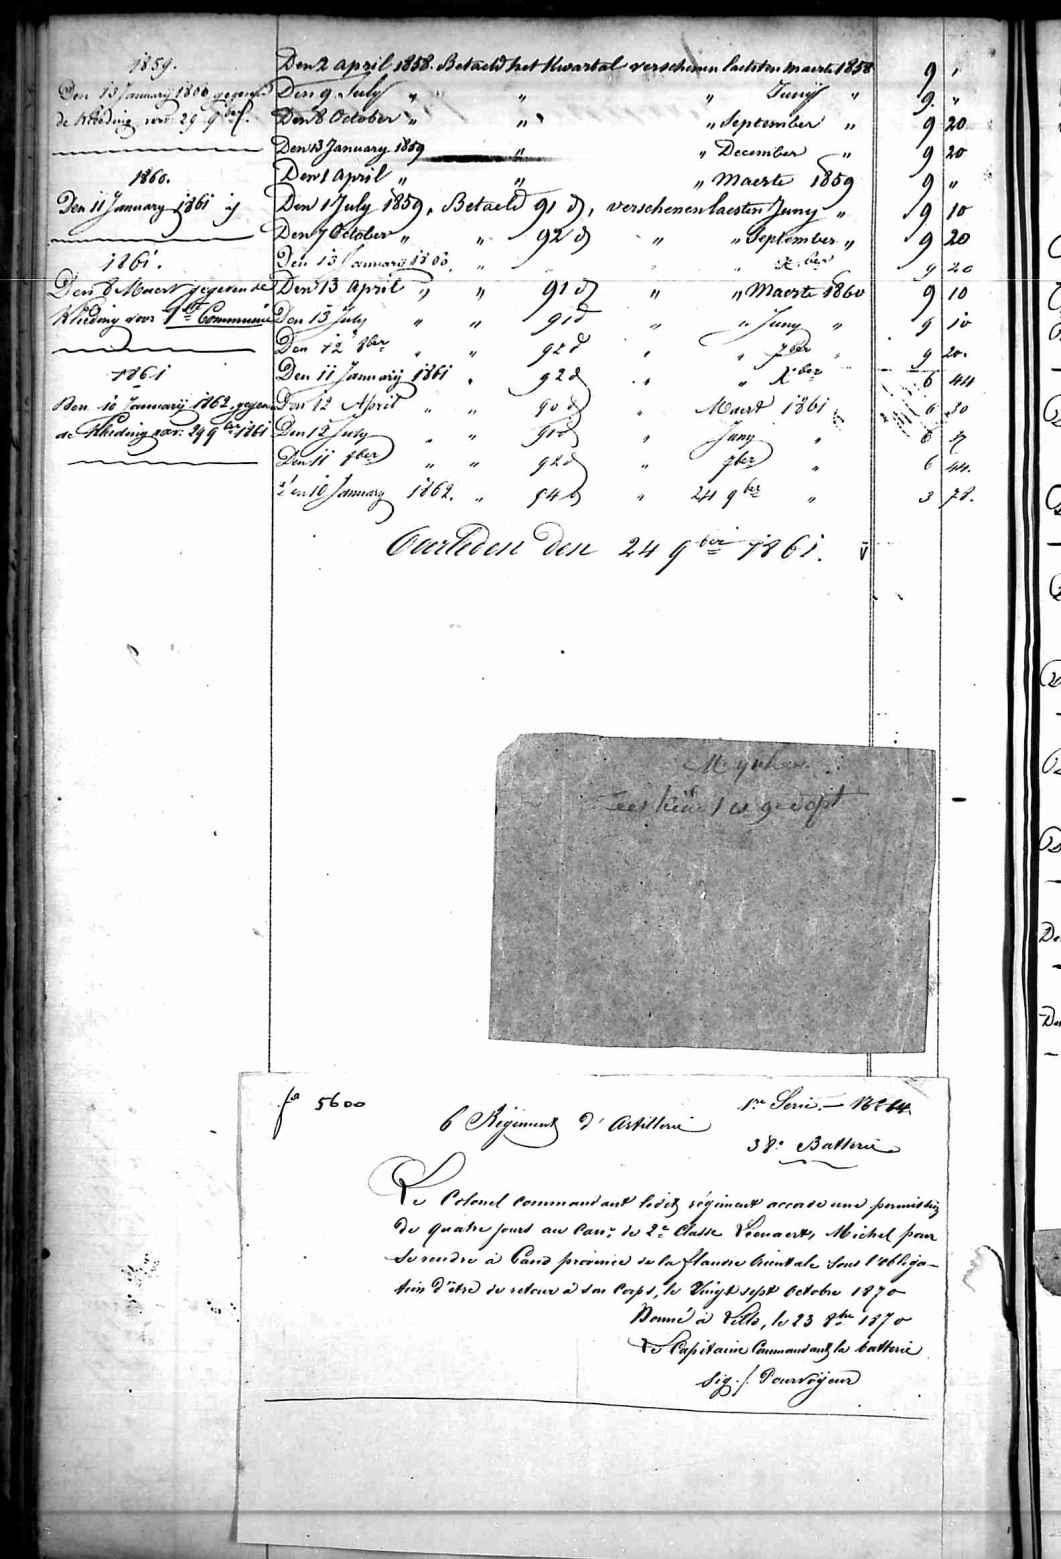 1859.
Den 13 January 1860 gegeven
de kleeding voor 29 9ber
1860.
Den 11 January 1861 ij
1861.
Den 8 Maert gegeven de
Kleeding voor 1ste Communie
1861
Den 10 Januarij 1862 gegeven
de Kleeding voor 29 9ber 1861
Den 2 april 1858. Betaeld het Kwartal verschenen laetsten maerte 1858 9 "
Den 9 July " " " Junij " 9 "
Den 8 October " " " September " 9 20
Den 13 January 1859 " " December " 9 20
Den 1 april " " " Maerte 1859 9 "
Den 1 July 1859, Betaeld 91 d, verschenen laesten Juny " 9 10
Den 7 October " " 92 d " " September " 9 20
Den 13 January 1860 " " Xber 9 20
Den 13 April " " 91 d " " Maerte 1860 9 10
Den 13 July " " 91 d " " Juny " 9 10
Den 12 8ber " " 92 d " " 7ber " 9 20.
Den 11 Januarij 1861 " 92 d " " Xber 6 44
Den 12 April " " 90 d " Maert 1861 6 30
Den 12 July " " 91 d " Juny " 6
Den 11 8ber " " 92 d " 7ber " 6 44.
Den 10 January 1862. " 54 d " 24 9ber " 3 78.
Overleden den 24 9ber 1861.
kind is gedopt
fo 5600
1re Serie. —
6 Régiment d'Artillerie
38e Batterie
Le Colonel commandant ledit régiment accorde une permission
de quatre jours au Canr de 2e Classe Lienaert, Michel pour
se rendre à Gand province de la flandre Orientale sous l'obliga-
tion d'être de retour à son Corps, le Vingt sept Octobre 1870
Donné à, le 23 8bre 1870
Le Capitaine Commandant la batterie
sig. /. Pourvoyeur